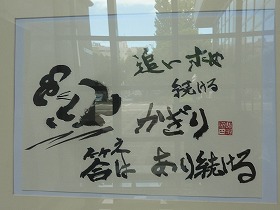 追い求め
続ける
かぎり
答えは あり続ける